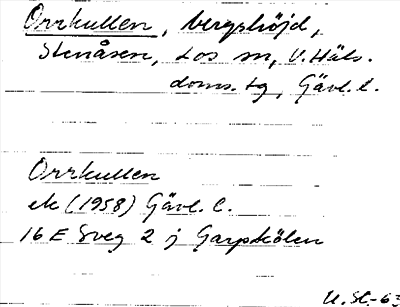 Orrkullen, bergshöjd,
Stenåsen, Los sn, V. Häls.
doms. tg, Gävl. l.
Orrkullen
ek (1958) Gävl. l.
16 E Sveg 2 j Garpkölen
U. St.-63